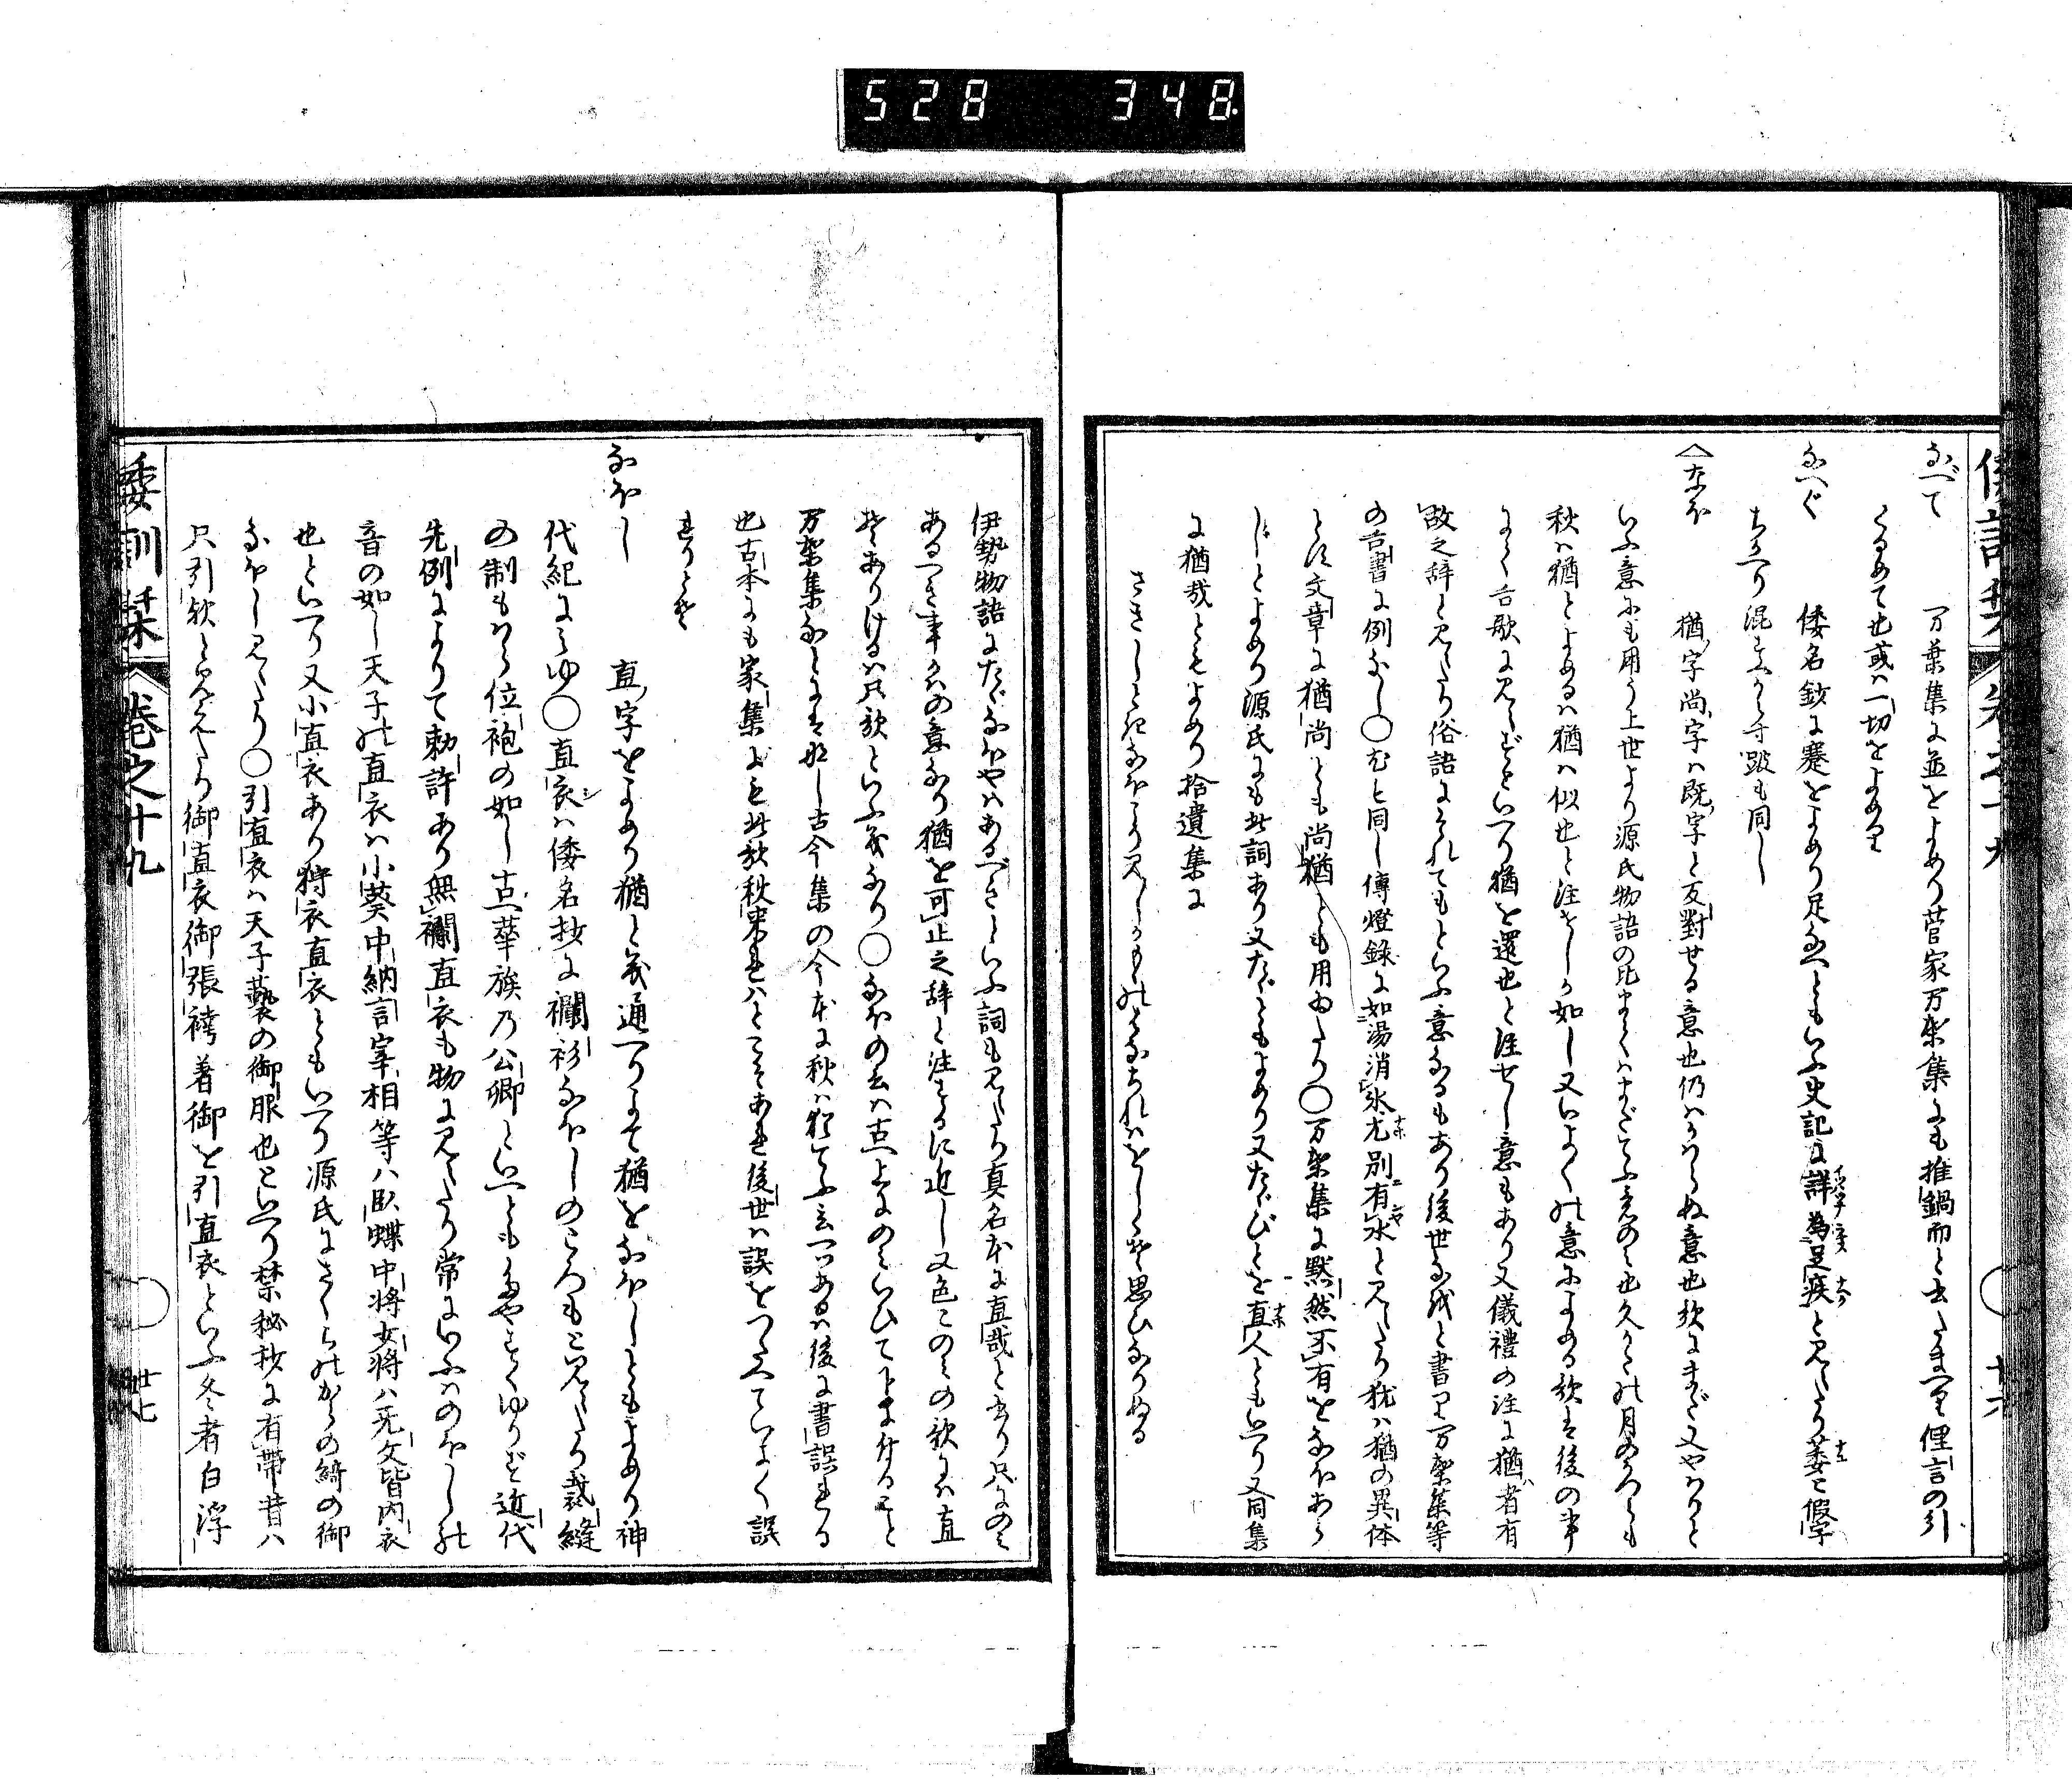 528 348
なべて 万葉集に並をよめり菅家万葉集にも推鍋而と書たまへり俚言の引
くるめて也或ハ一切をよめり
なへぐ 倭名鈔に蹇をよめり足なへともいふ史記に詳為足疾と見えたり萎と假字
ちかへり混すへからす跛も同し
なほ 猶字尚字ハ既字と反對せる意也仍ハかはらぬ意也歌にまだ又やはりと
いふ意にも用う上世より源氏物語の比まてハまだてふ意のミ也久かたの月のかつらも
秋ハ猶とよめるハ猶ハ似也と注せしか如し又いよいよの意によめる歌は後の事
にて古歌に見えずといへり猶を還也と注せし意もあり又儀禮の注に猶者有
故之辞と見えたり俗語にそれでもといふ意なるもあり後世なを越と書り万葉集等
の古書に例なし○むと同し傳燈録に如湯消氷尤別有氷と見えたり犹ハ猶の異体
とそ文章に猶尚とも尚猶とも用ゐたり○万葉集に黙然不有をなほあら
じとよめり源氏にも此詞あり又たゞともよめり又たゞびとを直人ともいへり又同集
に猶哉ともよめり拾遺集に
さきしときなほこそ見しかもゝのはなちれはをしくそ思ひなりぬる
伊勢物語にたゞなほやハあるべきといふ詞も見えたり真名本に直哉と書り只にのミ
あるへき事かハの意なり猶を可止之辞と注するに近し又色このミの歌にハ直
そありけるハ只歌といふ義なり○なほの書ハ古ハ上にのミいひて下に付ることと
万葉集なとには那し古今集の今本に秋ハ猶てふ言一つあるハ後に書誤れる
也古本にも家集にも此歌秋来れハとこそあれ後世ハ誤をつたへていよいよ誤
れりとそ
なほし 直字をよめり猶と義通へりよて猶をなほしともよめり神
代紀にミゆ○直衣ハ倭名抄に襴衫なほしのころもと見えたり裁縫
の制もはら位袍の如し古華族乃公卿といへともたやすくゆりず近代
先例によりて勅許あり無襴直衣も物に見えたり常にいふハのほしの
音の如し天子の直衣ハ小葵中納言宰相等ハ臥蝶中将女将ハ无文皆内衣
也といへり又小直衣あり狩衣直衣ともいへり源氏にさくらのからの綺の御
なほし見えたり○引直衣ハ天子褻の御服也といへり禁秘抄に有帯昔ハ
只引歟と見えたり御直衣御張袴着御を引直衣といふ冬者白浮
倭訓栞 巻之十九 卅七